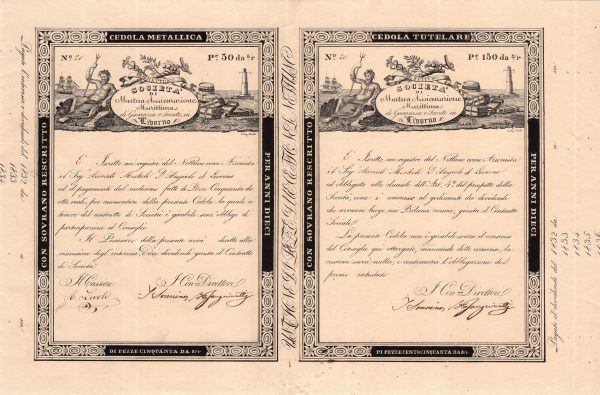 CEDOLA METALLICA
Nº 20
Pe 50 da 8/r
SOCIETA'
DI
Mutua Assicurazione
Marittima
di Garanzie e Sconti in
Livorno
E' Iscritto nei registri del Nettuno come Azionista
il Sig
di Livorno
ed il pagamento del medesimo fatto di Pezze Cinquanta da
otto reali, per ammontare della presente Cedola, la quale a
tenore del contratto di Società è girabile senz' obbligo di
partecipazione al Consiglio
Il Possessore della presente avrà diritto alla
riscossione degl' interessi, e dividendi giusta il Contratto
di Società
Il Cassiere
I Con-Direttori
DI PEZZE CINQUANTA DA 8/r
CON SOVRANO RESCRITTO
PER ANNI DIECI
CEDOLA TUTELARE
Nº 20
Pe 150 da 8/r
SOCIETA'
DI
Mutua Assicurazione
Marittima
di Garanzie e Sconti in
Livorno
E' Iscritto nei registri del Nettuno come Azionista
il Sig
di Livorno
ed obbligato alle clausole dell' Art. del prospetto della
Società, come è ammesso al godimento dei dividendi
che avranno luogo nei Bilanci annui, giusta il Contratto
Sociale
La presente Cedola non è girabile senza il consenso
del Consiglio qui attergato, mancando detto consenso, la
cessione sarà nulla, e continuerà l'obbligazione del
primo intestato
I Con-Direttori
DI PEZZE CENTOCINQUANTA DA 8/r
CON SOVRANO RESCRITTO
PER ANNI DIECI
Pagato il dividendo del 1832 da
1833
1834
1835
1836